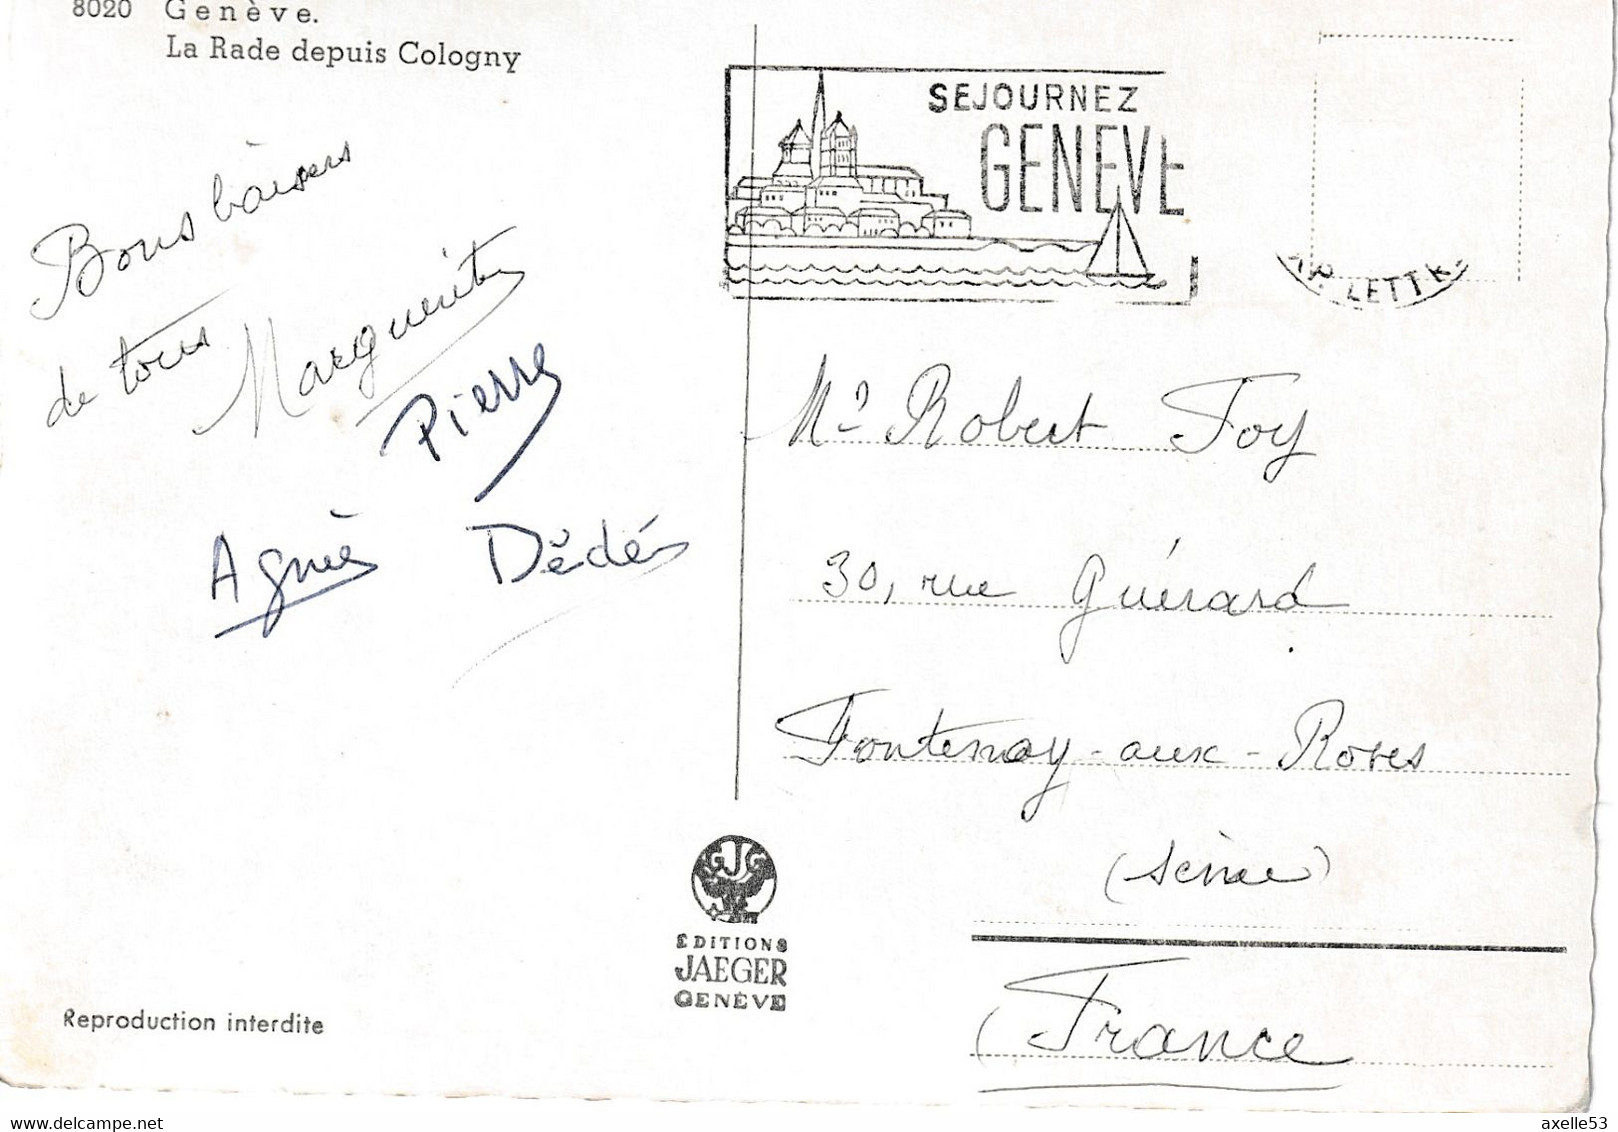 8020 Genève.
La Rade depuis Cologny
SEJOURNEZ
GENEVE
LETTR.
Bons baisers
de tous
Marguerite
Pierre
Agnès
Dédés
Mr Robert Foy
30, rue Guérard
Fontenay-aux-Roses
(Seine)
(France
GJG
EDITIONS
JAEGER
GENÈVE
Reproduction interdite
axelle53